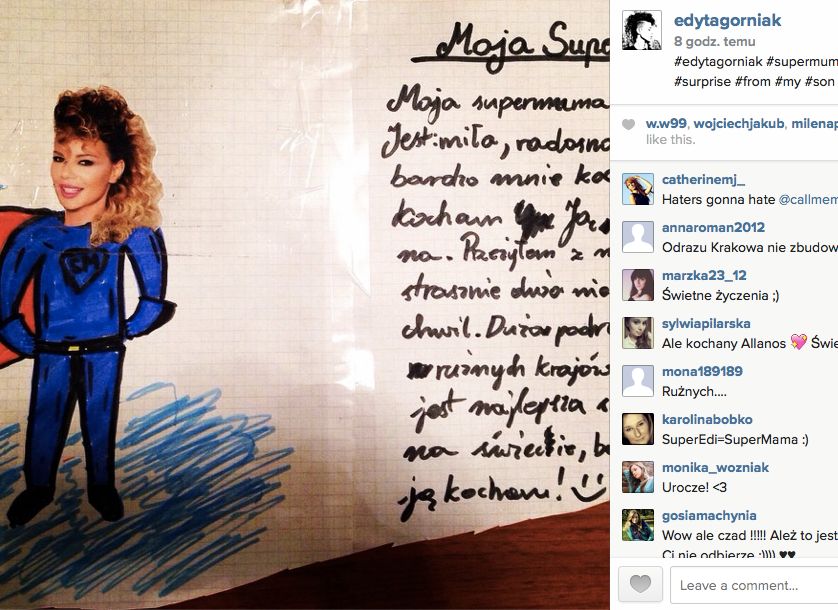 Moja Supe
Moja supermuma
Jest: miła, radosna
bardzo mnie koc
kocham
na. Przeżyłem z
strasznie dużo
chwil. Dużo podr
w rużnych krajów
jest najlepsza
na świecie, b
ją kocham! :)
SM
edytagorniak
8 godz. temu
#edytagorniak #supermum
#surprise #from #my #son
w.w99, wojciechjakub, milenap
like this.
catherinemj_
Haters gonna hate @callmem
annaroman2012
Odrazu Krakowa nie zbudow
marzka23_12
Świetne życzenia ;)
sylwiapilarska
Ale kochany Allanos 💘 Świe
mona189189
Rużnych....
karolinabobko
SuperEdi=SuperMama :)
monika_wozniak
Urocze! <3
gosiamachynia
Wow ale czad !!!!! Ależ to jest
Ci nie odbierze :)))) ♥♥
Leave a comment...